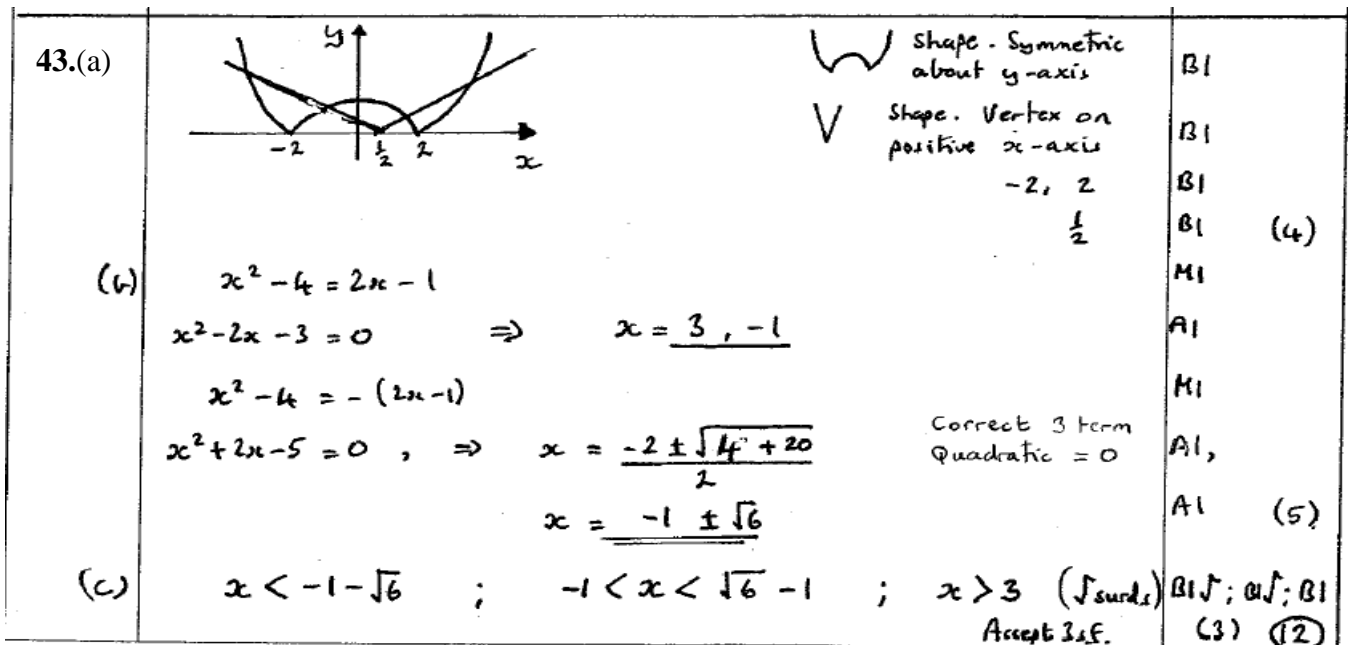 43.(a) y shape. Symmetric about y-axis B1
V shape. Vertex on positive x-axis B1
-2 ½ 2 x
-2, 2 B1
½ B1 (4)
(b) x² - 4 = 2x - 1 M1
x² - 2x - 3 = 0 ⇒ x = 3, -1 A1
x² - 4 = - (2x - 1) M1
x² + 2x - 5 = 0 , ⇒ x = (-2 ± √(4 + 20))/2 Correct 3 term Quadratic = 0 A1,
x = -1 ± √6 A1 (5)
(c) x < -1 - √6 ; -1 < x < √6 - 1 ; x > 3 (√surds) B1√; B1√; B1
Accept 3s.f. (3) (12)